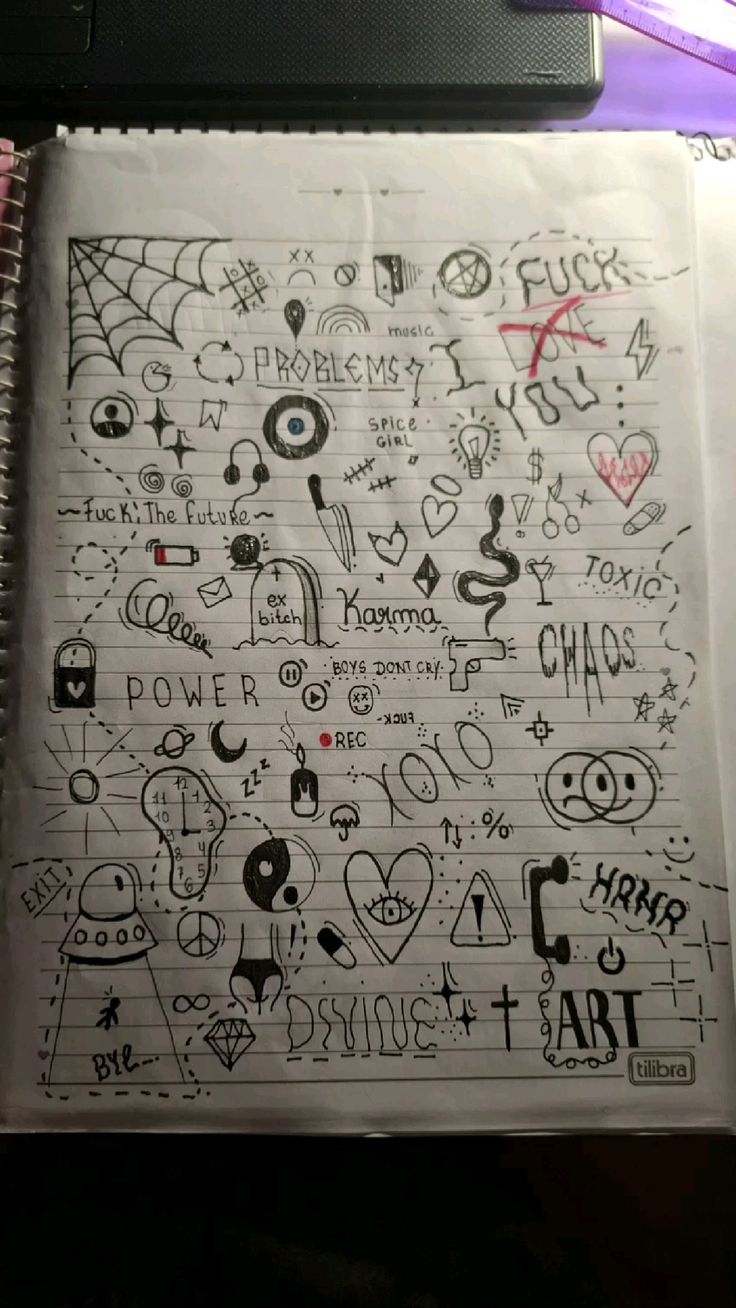 FUCK
LOVE
music
PROBLEMS
YOU
SPICE
GIRL
$
~Fuck: The Future~
TOXIC
ex
bitch
Karma
CHAOS
BOYS DONT CRY
POWER
FUCK
REC
XOXO
zzz
12
11 1
10 2
9 3
8 4
7 5
6
%
EXIT
!
HAHA
DIVINE
ART
BYE...
tilibra